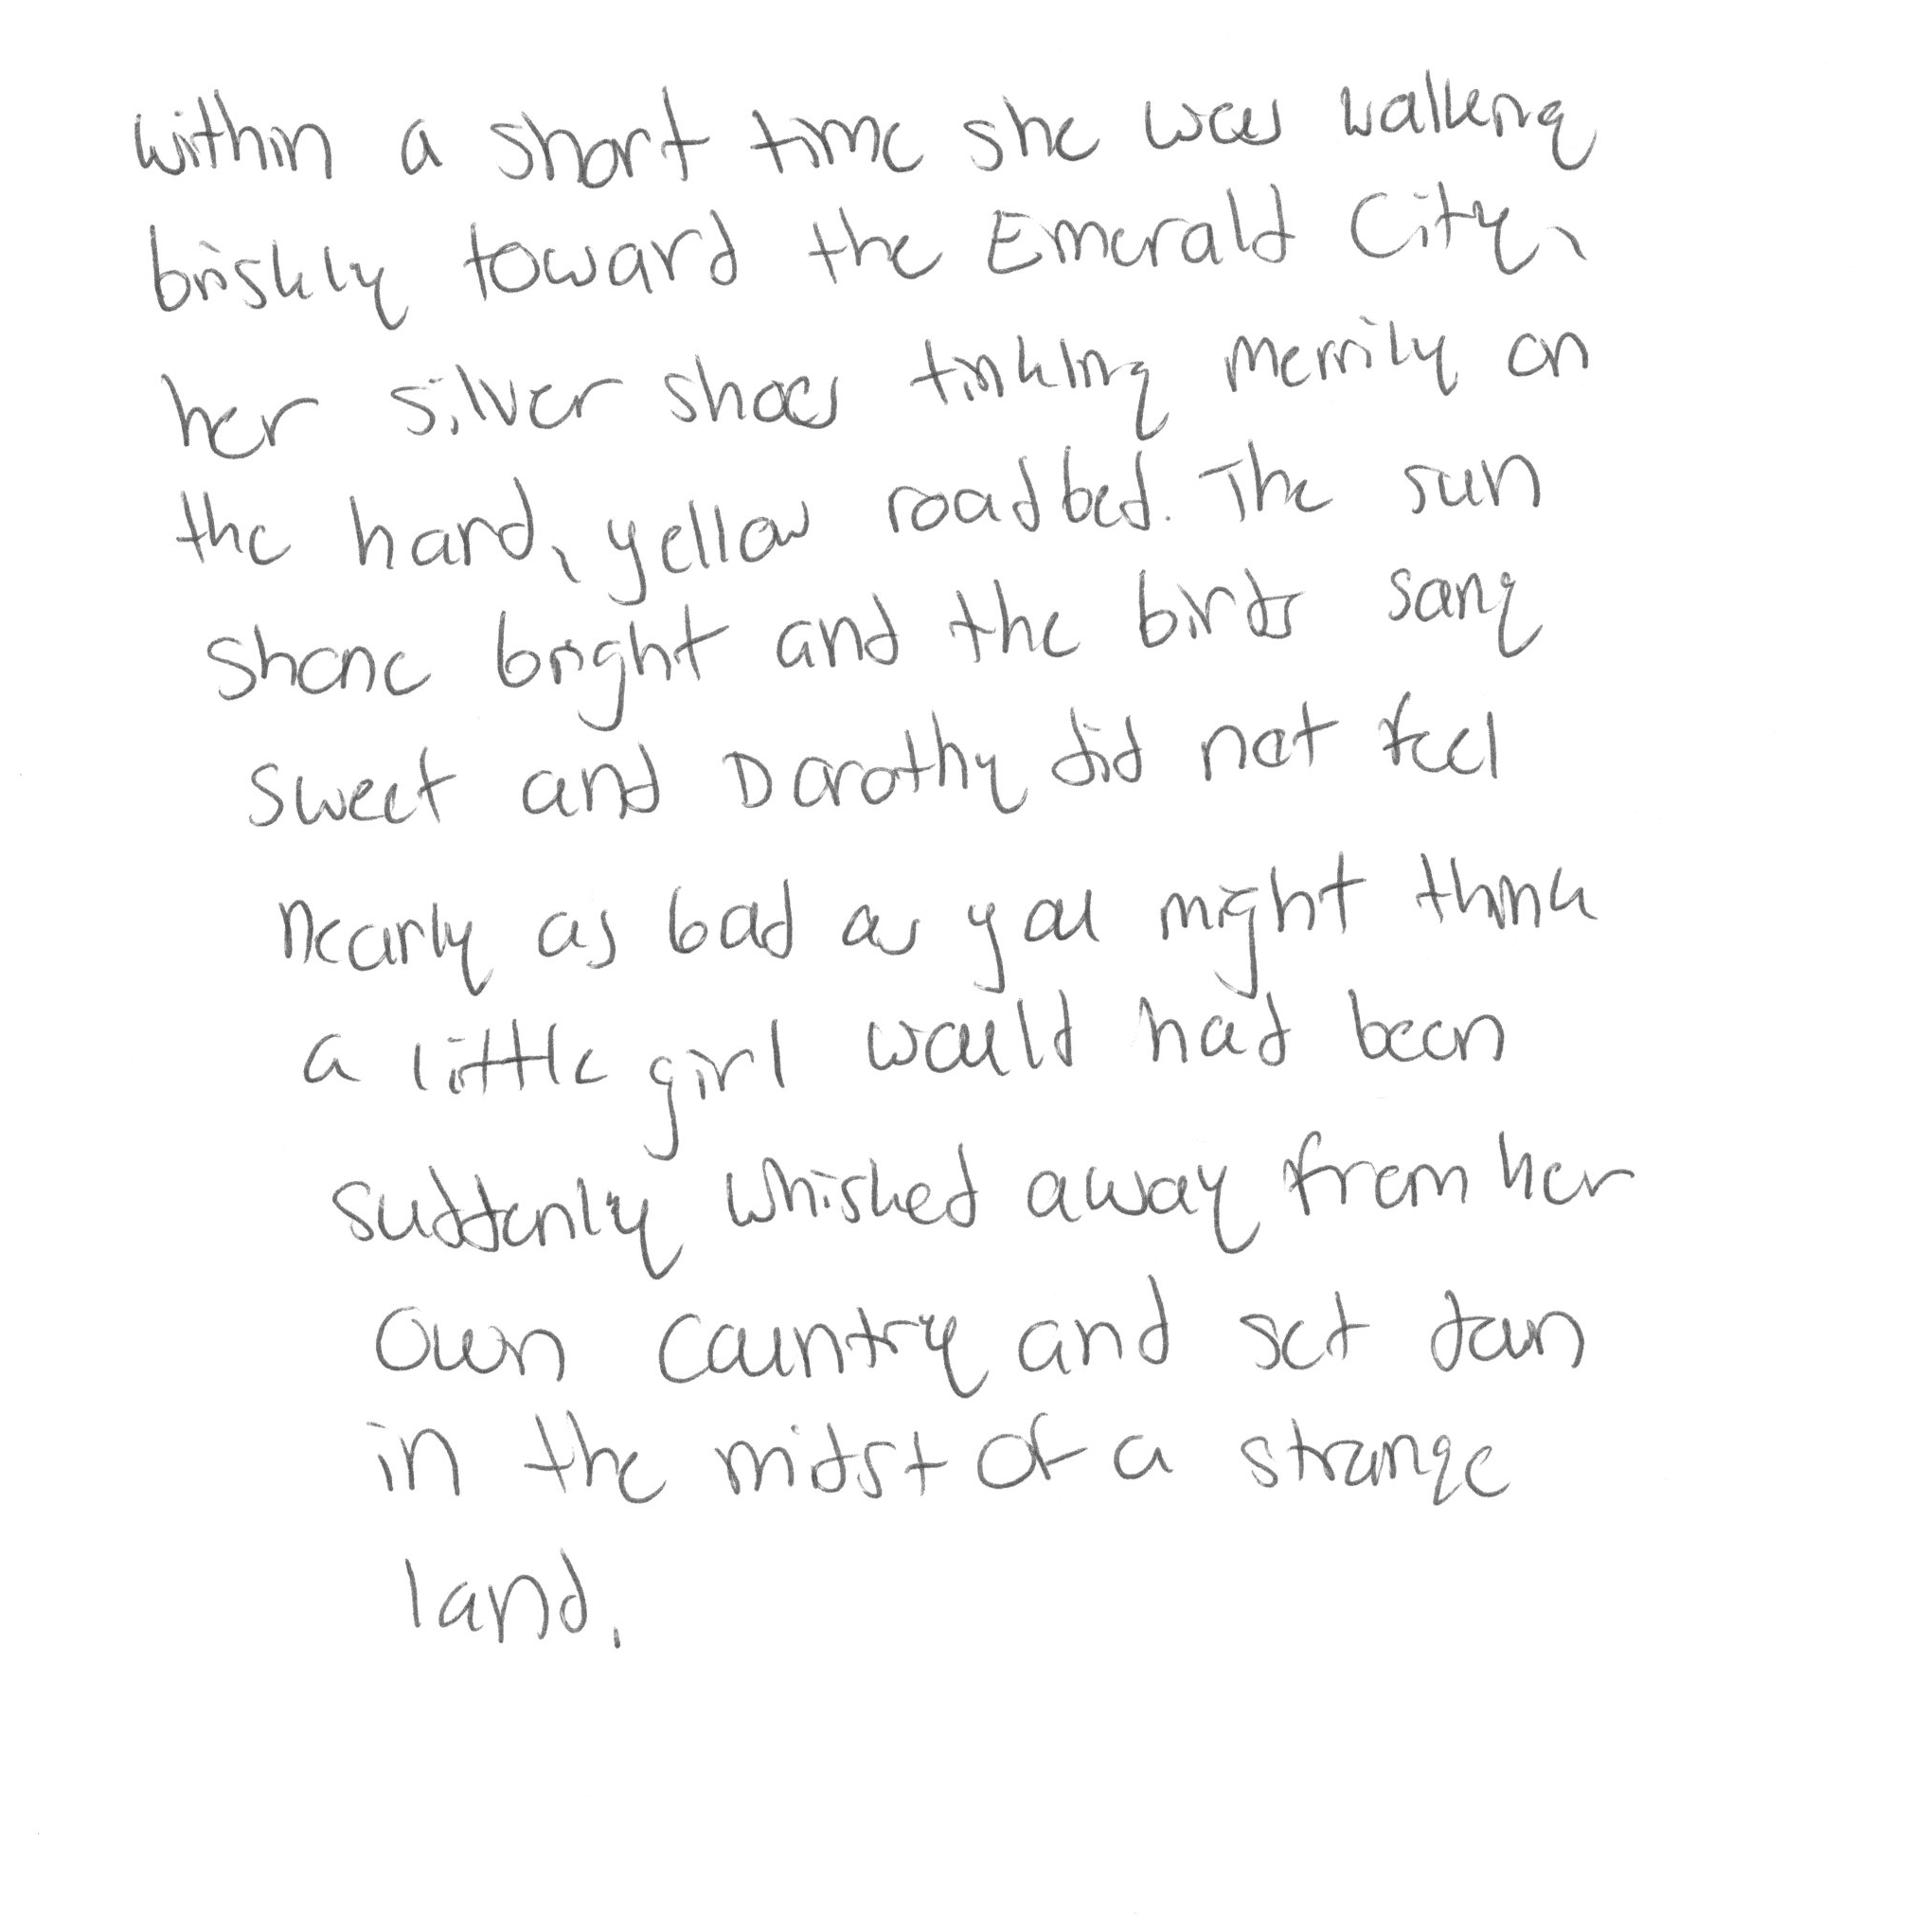 within a short time she was walking
briskly toward the Emerald City,
her silver shoes tinkling merrily on
the hard, yellow roadbed. The sun
shone bright and the birds sang
sweet and Dorothy did not feel
nearly as bad as you might think
a little girl would had been
suddenly whisked away from her
own country and set down
in the midst of a strange
land.